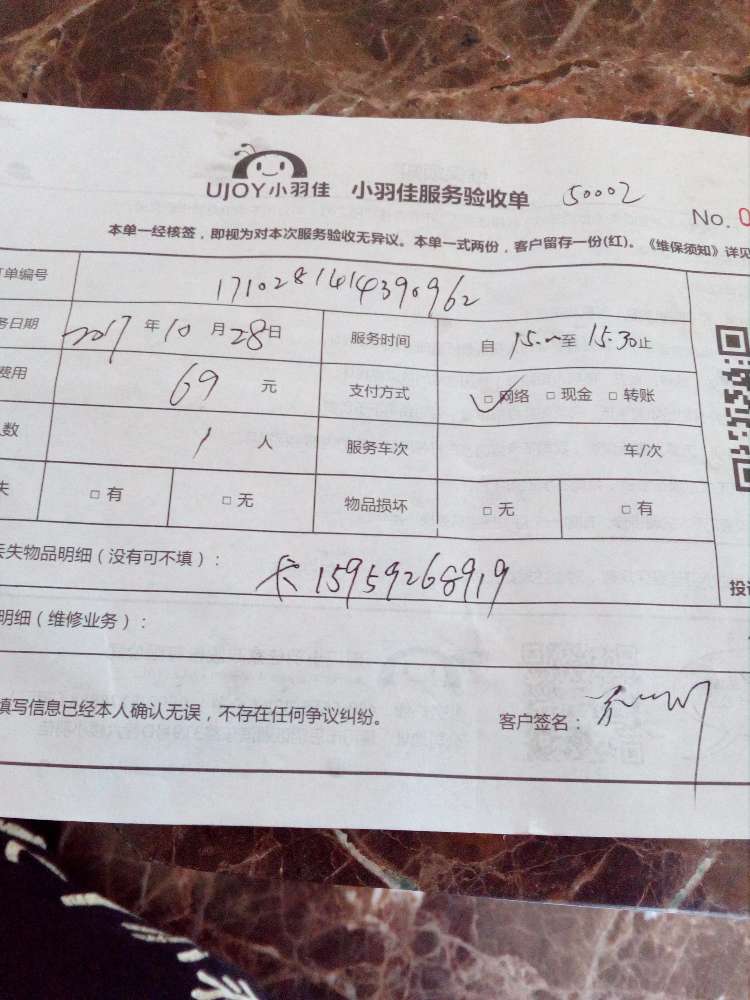 UJOY小羽佳 小羽佳服务验收单 50002
No. 0
本单一经核签，即视为对本次服务验收无异议。本单一式两份，客户留存一份(红)。《维保须知》详见
单编号 1710281414390962
务日期 2017 年 10 月 28 日 服务时间 自 15:00 至 15:30 止
费用 69 元 支付方式 □网络 □现金 □转账
人数 1 人 服务车次 车/次
失 □有 □无 物品损坏 □无 □有
丢失物品明细（没有可不填）： 卡 15959268919
投诉
明细（维修业务）：
填写信息已经本人确认无误，不存在任何争议纠纷。 客户签名：